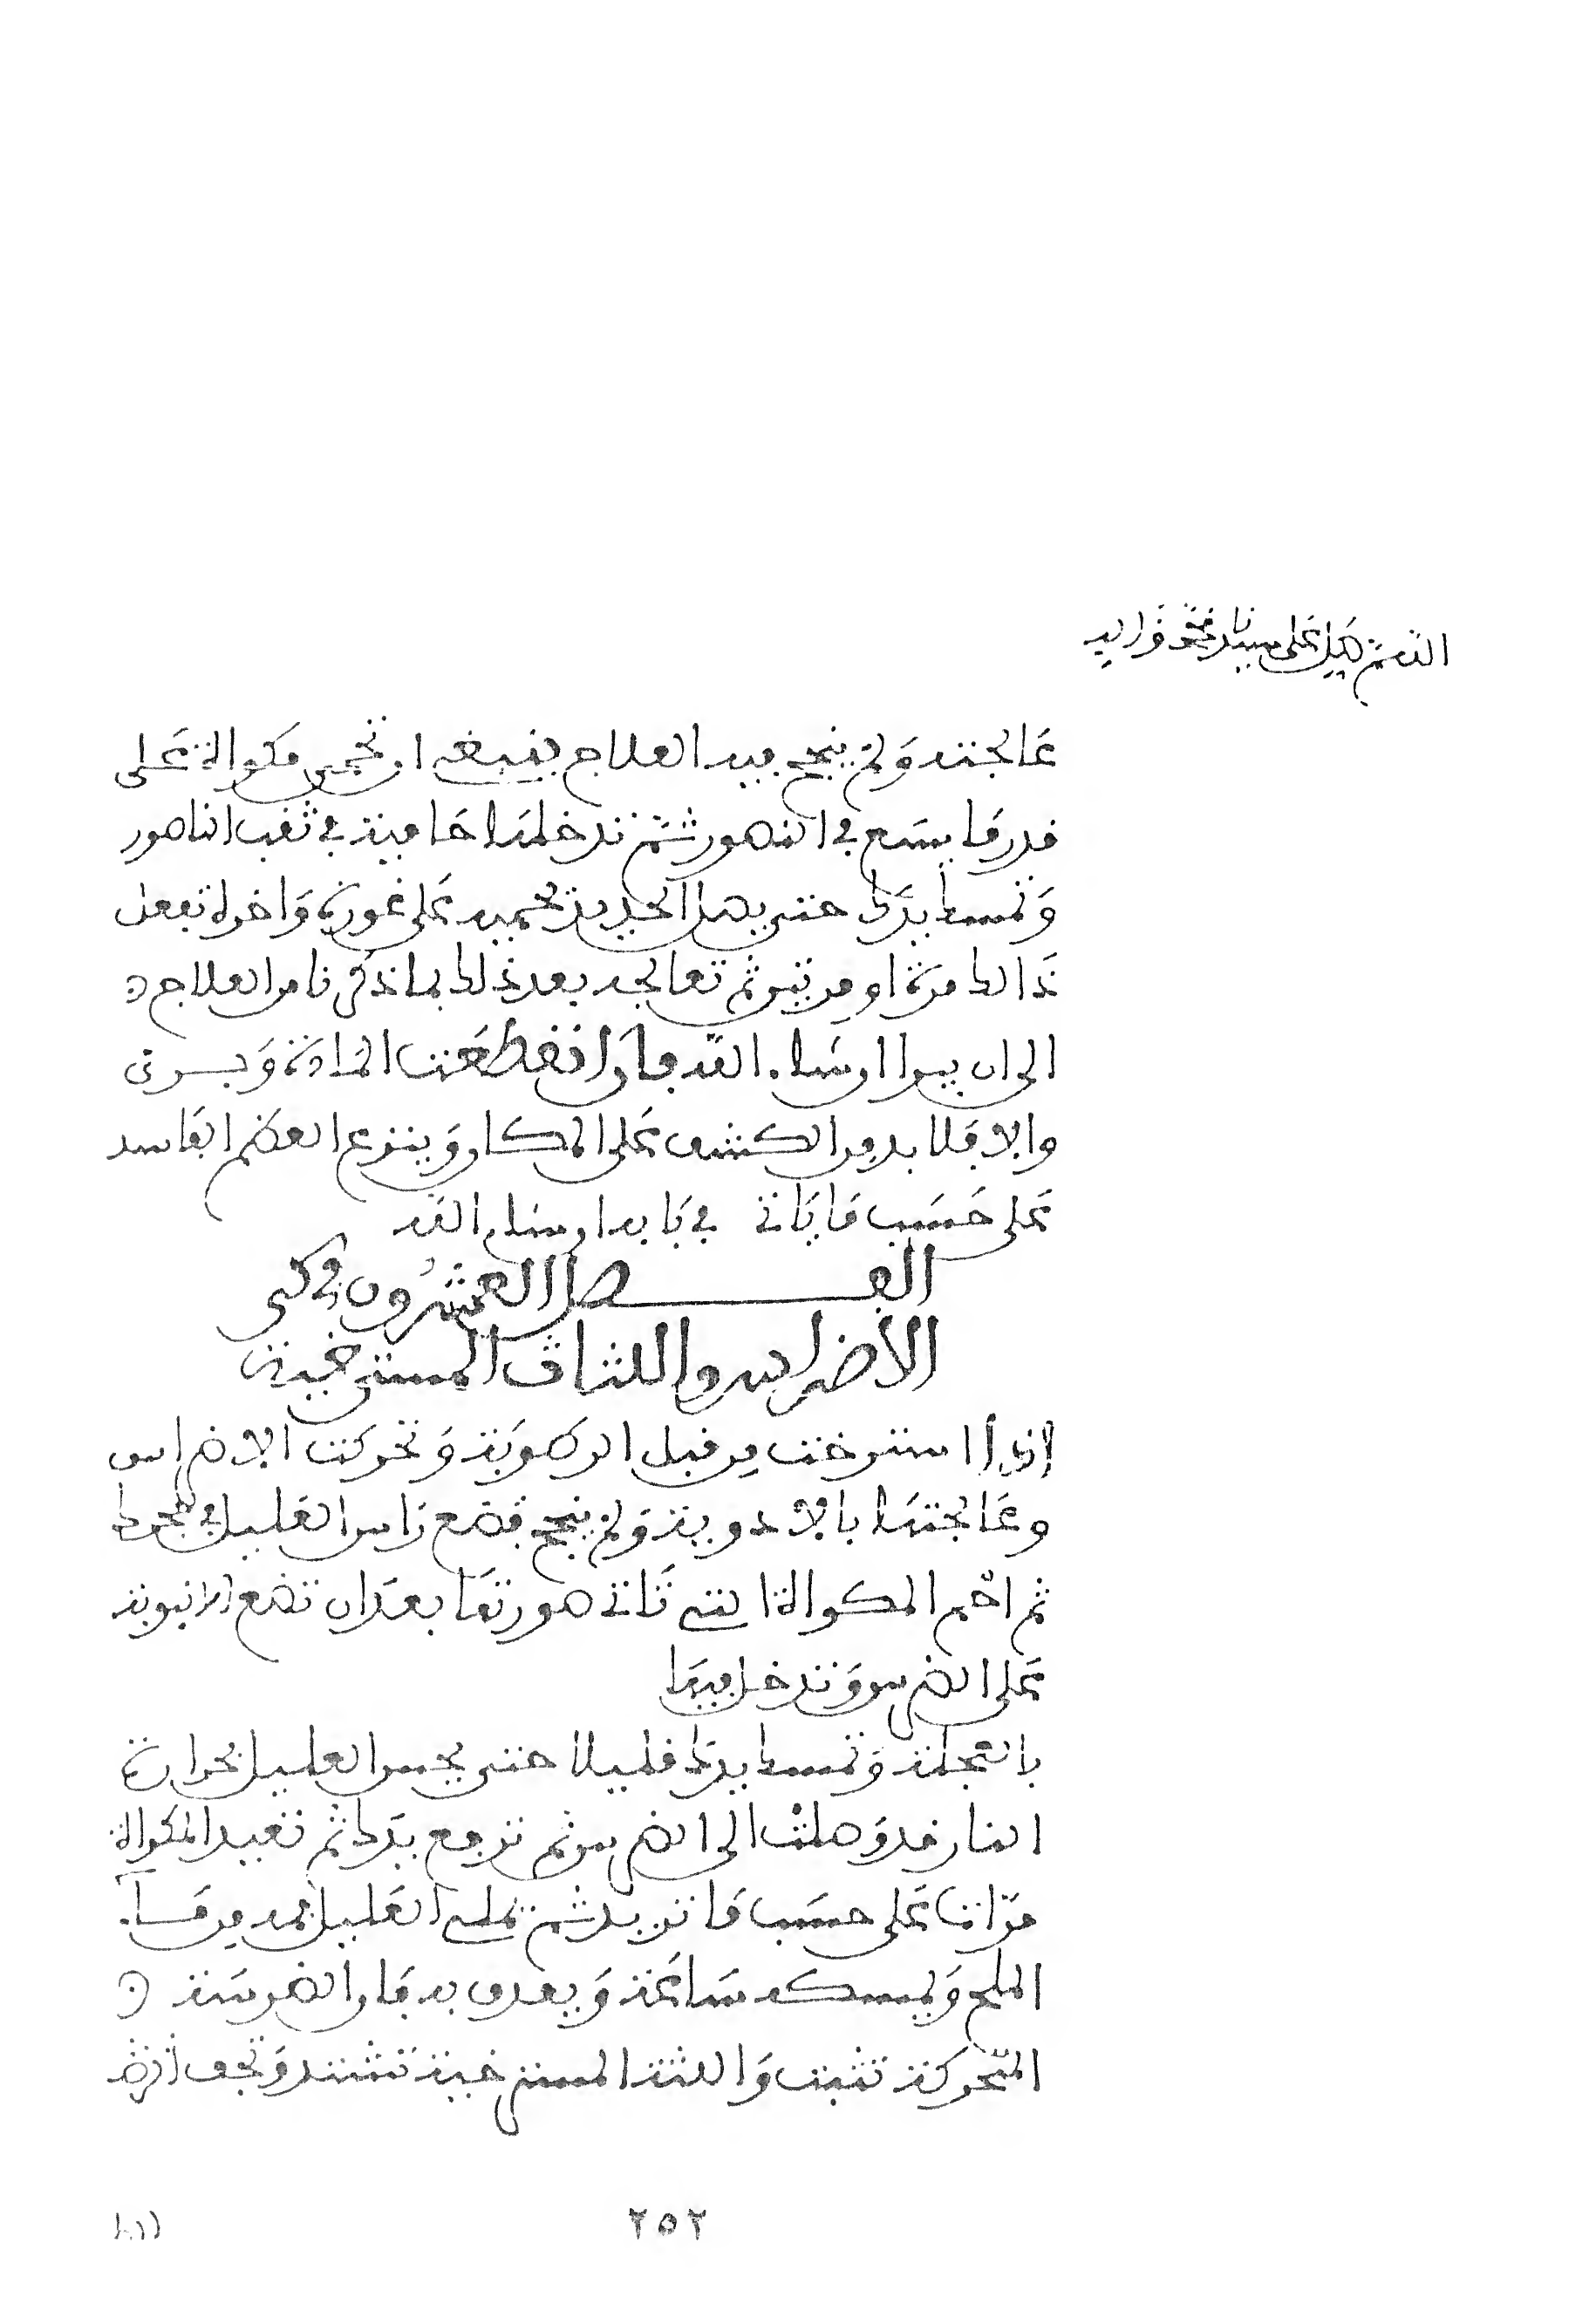 اللهم صل على سيدنا محمد وءاله
عَالجته وَلم ينجح فيه العلاج فينبغي ان تحمى مكواة على
قدر مَا يسَع في الناصور ثمّ تدخلهَا حَامية في ثقب الناصور
وَتمسك يدَك حتى يصل الحديد محميه على غوره وَاخره تفعل
ذَالك مرة او مرتين ثم تعالجه بعد ذلك بما ذكرنا من العلاج
الى ان يبرا ان شاء الله فان انقطعَت المَادة وَبرئ
والا فلا بد من الكشف على المكان وَينزع العظم الفَاسد
على حَسَب مَا يَاتي في بَابه ان شاء الله
الفصل العشرُون في كي
الأضراس واللثات المسترخية
إذا استرخت من قبل الرطوبَة وَتحركت الاضراس
وعَالجتهَا بالادوية وَلم ينجح فضع رَاس العليل في حجرك
ثم احم المكواة التي تَاتي صورتهَا بعدَ ان تضع الانبوبة
على الضرس وَتدخل فيهَا
بالعجلة وَتمسك يدَك قليلا حتى يحس العليل بحرارة
النار قد وَصلت الى الضرس ثم ترجع يدَك ثم تعيد المكواة
مرّات على حسَب مَا تريد ثم يملى العَليل فمه من مَاء
الملح وَيمسكه سَاعَة وَيقذف به فان الضرسَة
المتحركَة تثبت وَاللثة المسترخية تشتد وَتجف
٢٥٢